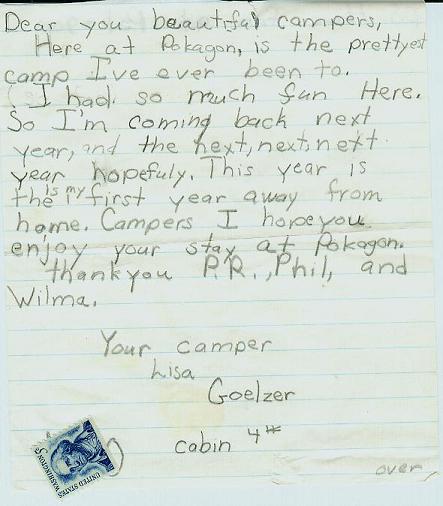 Dear you beautiful campers,
Here at Pokagon, is the prettyest
camp I've ever been to.
I had so much fun Here.
So I'm coming back next
year, and the next, next, next
year hopefuly. This year is
the is my first year away from
home. Campers I hope you
enjoy your stay at Pokagon.
thankyou P.R., Phil, and
Wilma.
Your camper
Lisa
Goelzer
cabin 4#
over
UNITED STATES
WASHINGTON 5¢